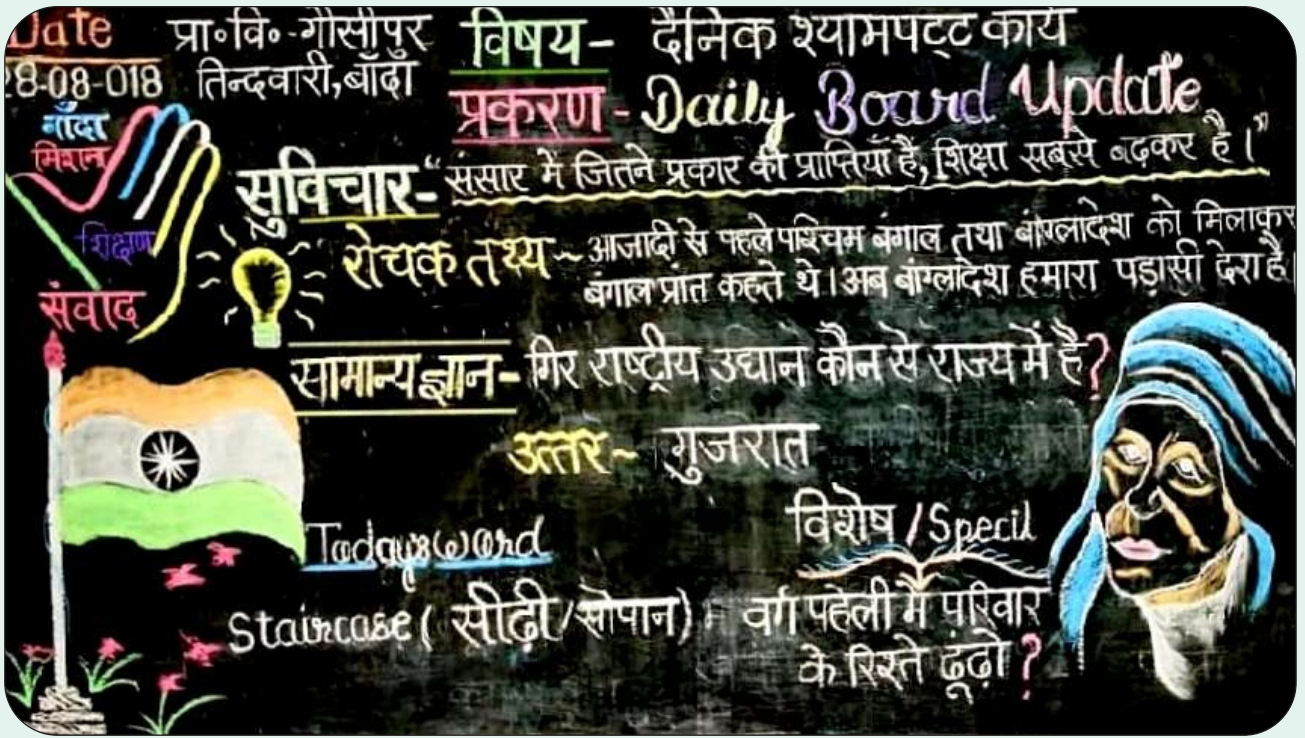 Date प्रा॰वि॰-गौसीपुर
28-08-018 तिन्दवारी,बाँदा
विषय- दैनिक श्यामपट्ट कार्य
प्रकरण- Daily Board Update
बाँदा
मिशन
शिक्षण
संवाद
सुविचार-“संसार में जितने प्रकार की प्राप्तियाँ है, शिक्षा सबसे बढकर है।”
रोचक तथ्य~आजादी से पहले पश्चिम बंगाल तथा बांग्लादेश को मिलाकर
बंगाल प्रांत कहते थे।अब बांग्लादेश हमारा पड़ासी देश है।
सामान्य ज्ञान- गिर राष्ट्रीय उद्यान कौन से राज्य में है?
उत्तर~ गुजरात
Today's word
Staircase ( सीढ़ी/सोपान)
विशेष /Specil
वर्ग पहेली में परिवार
के रिश्ते ढूंढ़ो ?